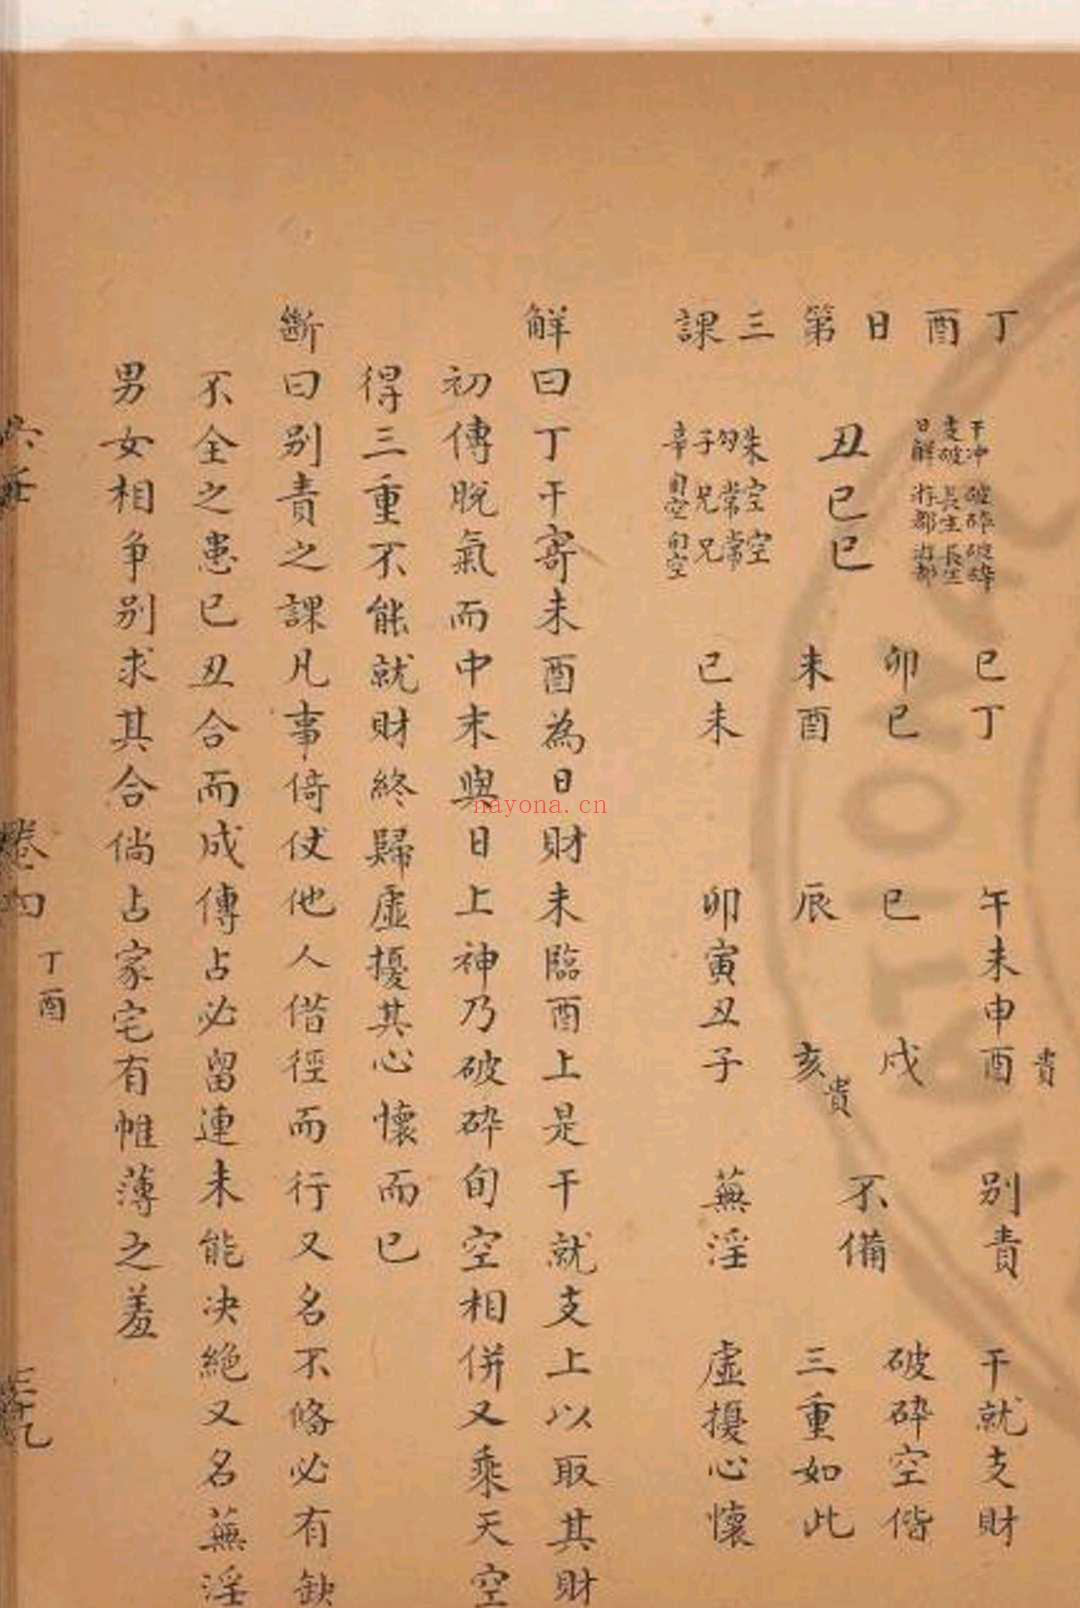 丁酉日第三課
干冲 破碎 破碎
支破 長生 長生
日解 游都 游都
丑巳巳
朱空空
勾常常
子兄兄
辛旬空旬空
巳丁
卯巳
未酉
巳未
午未申酉貴
巳戌
辰亥貴
卯寅丑子
别責
不備
蕪淫
干就支財
破碎空偕
三重如此
虛擾心懷
解曰丁干寄未酉為日財未臨酉上是干就支上以取其財
初傳脫氣而中末與日上神乃破碎旬空相併又乘天空
得三重不能就財終歸虛擾其心懷而已
斷曰别責之課凡事倚仗他人借徑而行又名不俻必有缺
不全之患巳丑合而成傳占必留連未能决絶又名蕪淫
男女相争别求其合倘占家宅有帷薄之羞
六壬
卷四
丁酉
nayona.cn